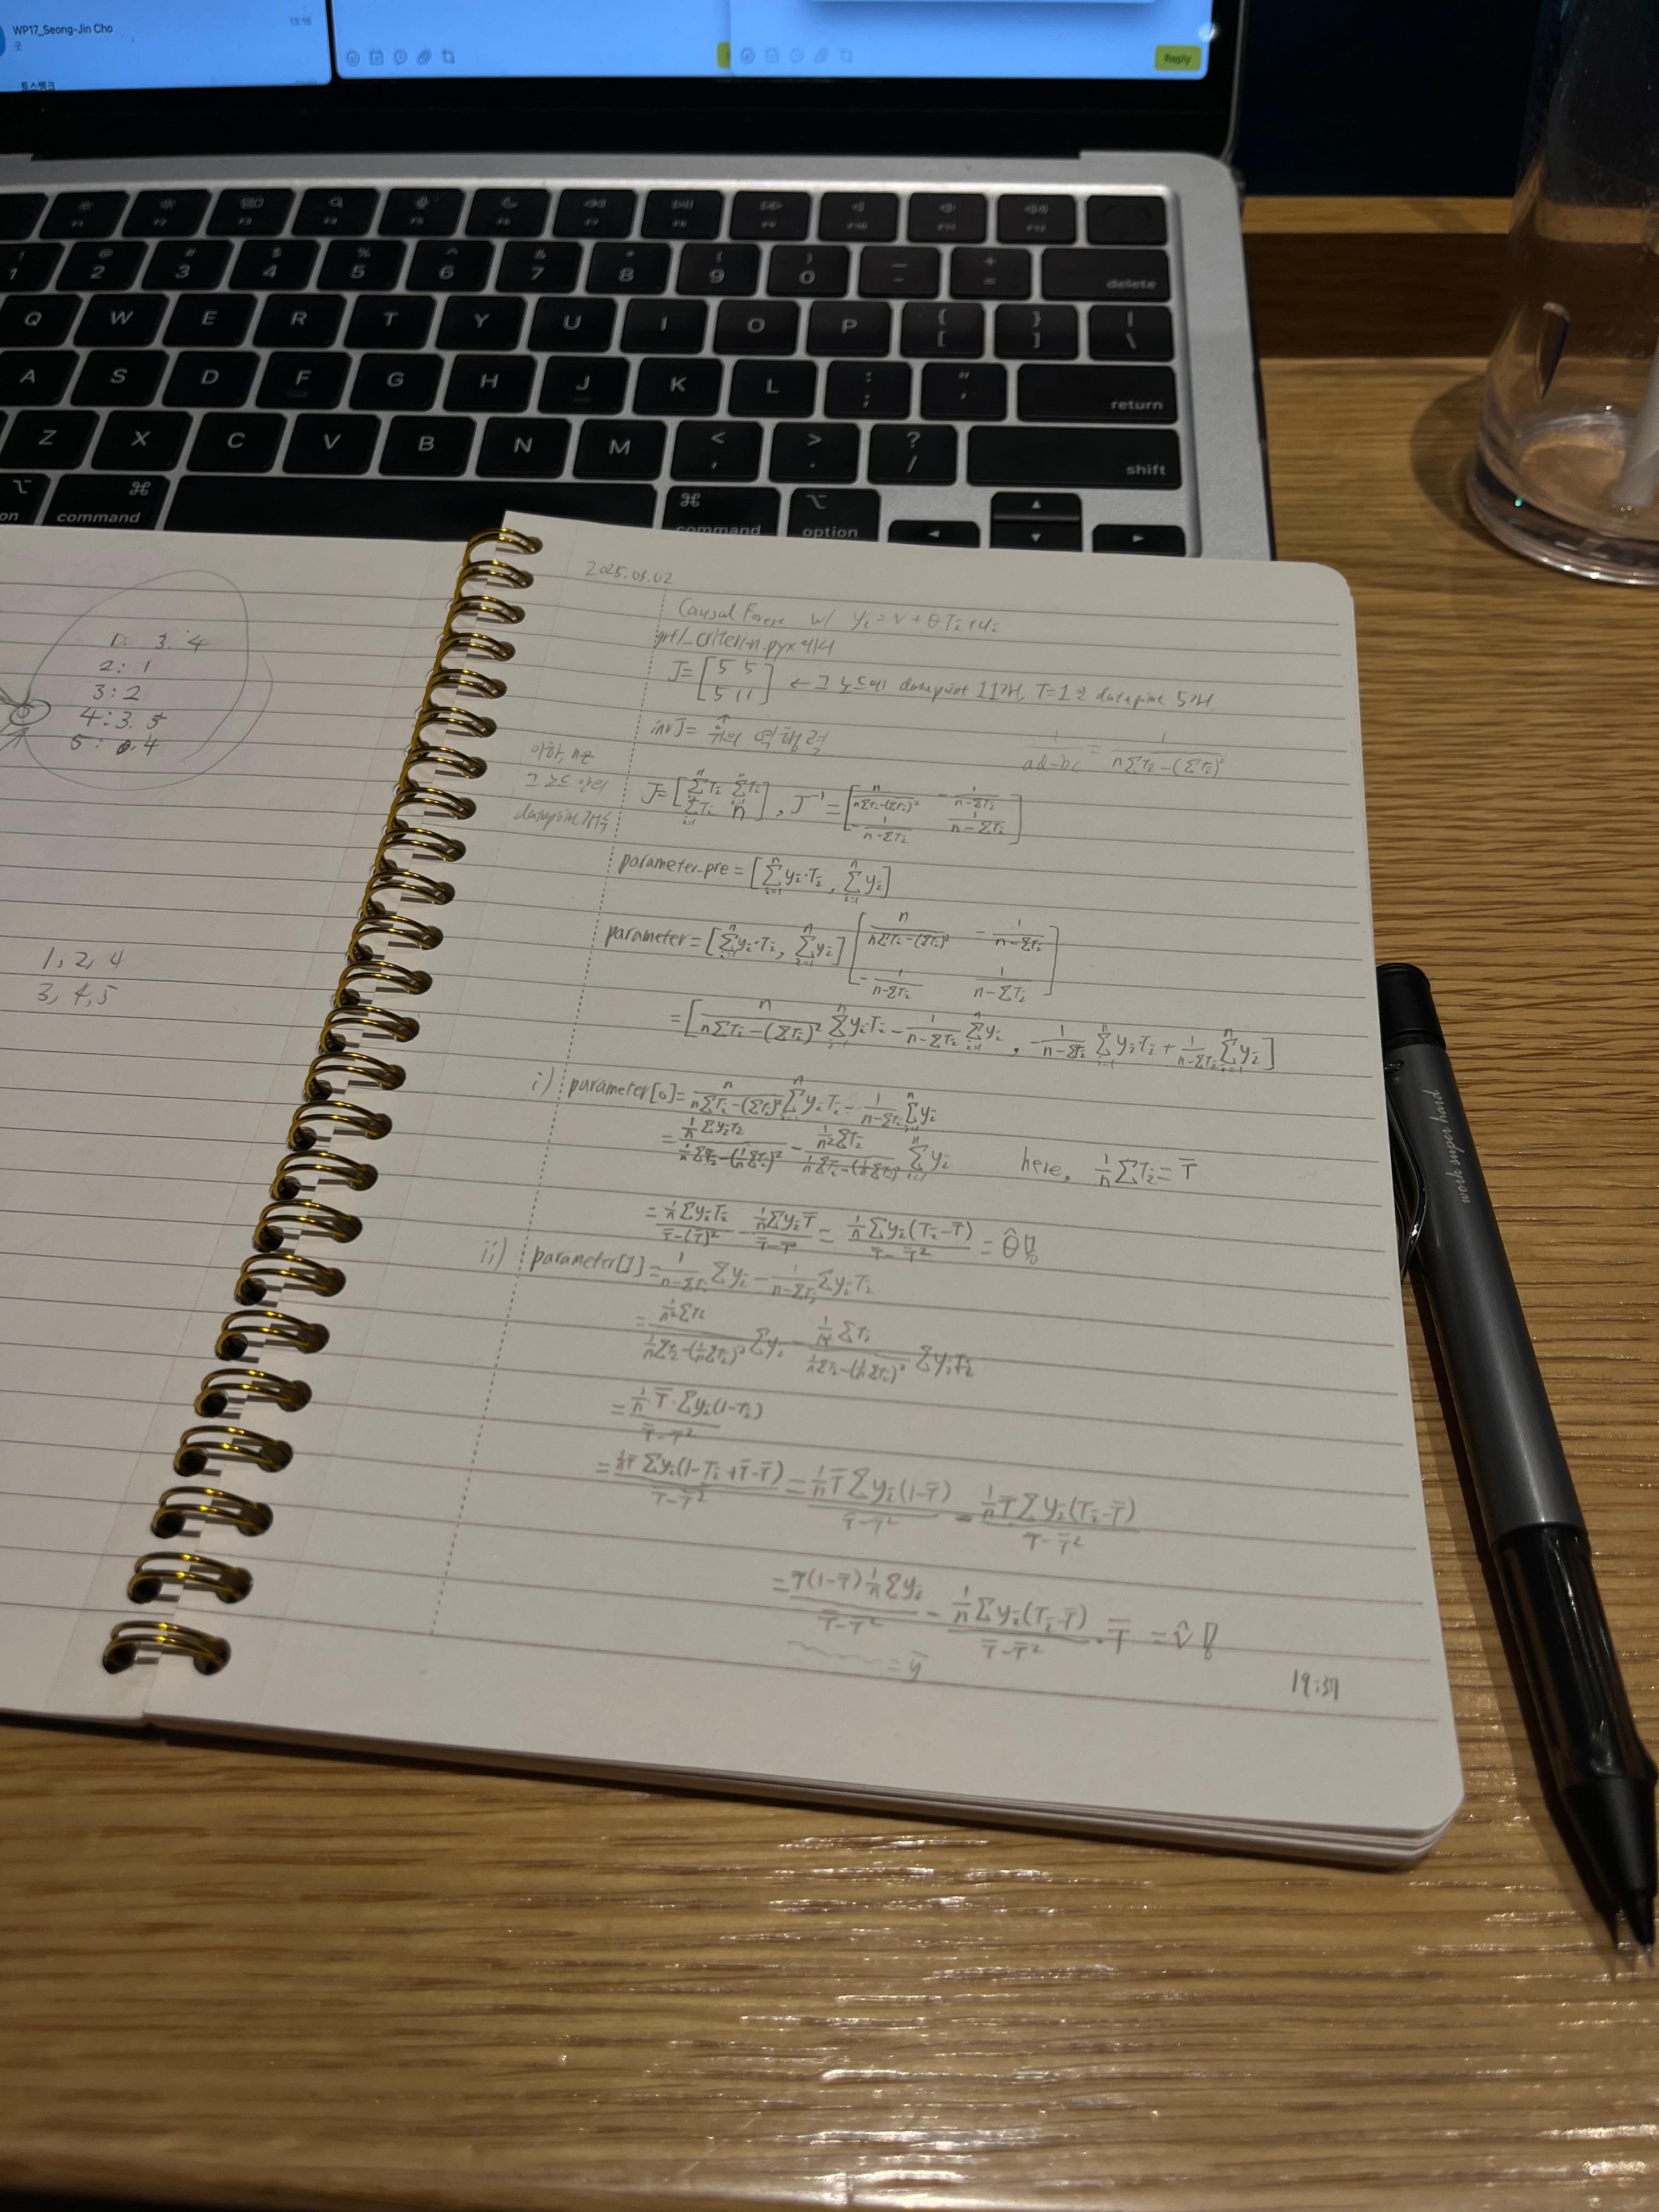 WP17_Seong-Jin Cho
굿
13:16
토스뱅크
Reply
F1 F2 F3 F4 F5 F6 F7 F8 F9 F10 F11 F12
! 1 @ 2 # 3 $ 4 % 5 ^ 6 & 7 * 8 ( 9 ) 0 — - + = delete
Q W E R T Y U I O P { [ } ] | \
A S D F G H J K L : ; " ' return
Z X C V B N M < , > . ? / shift
⌥ ⌘ ⌘ ⌥
on command command option
1: 3. 4
2: 1
3: 2
4: 3. 5
5: 4
1, 2, 4
3, 4, 5
2025.03.02
Causal Forest w/ yᵢ = ν + θTᵢ + uᵢ
grf/_criterion.pyx에서
J = [5 5; 5 11] ← 그 노드에 datapoint 11개, T=1인 datapoint 5개.
invJ = 위의 역행렬
1/(ad-bc) = 1/(nΣTᵢ-(ΣTᵢ)²)
이하, n은
그 노드 안의
datapoint 개수
J = [Σᵢ₌₁ⁿTᵢ Σᵢ₌₁ⁿTᵢ; Σᵢ₌₁ⁿTᵢ n], J⁻¹ = [n/(nΣTᵢ-(ΣTᵢ)²) -1/(n-ΣTᵢ); -1/(n-ΣTᵢ) 1/(n-ΣTᵢ)]
parameter_pre = [Σᵢ₌₁ⁿyᵢ·Tᵢ, Σᵢ₌₁ⁿyᵢ]
parameter = [Σᵢ₌₁ⁿyᵢ·Tᵢ, Σᵢ₌₁ⁿyᵢ] [n/(nΣTᵢ-(ΣTᵢ)²) -1/(n-ΣTᵢ); -1/(n-ΣTᵢ) 1/(n-ΣTᵢ)]
= [n/(nΣTᵢ-(ΣTᵢ)²) Σᵢ₌₁ⁿyᵢTᵢ - 1/(n-ΣTᵢ) Σᵢ₌₁ⁿyᵢ, -1/(n-ΣTᵢ) Σᵢ₌₁ⁿyᵢ·Tᵢ + 1/(n-ΣTᵢ) Σᵢ₌₁ⁿyᵢ]
i) parameter[0] = n/(nΣTᵢ-(ΣTᵢ)²) Σᵢ₌₁ⁿyᵢTᵢ - 1/(n-ΣTᵢ) Σᵢ₌₁ⁿyᵢ
= (1/n ΣyᵢTᵢ)/(1/n ΣTᵢ-(1/n ΣTᵢ)²) - (1/n² ΣTᵢ)/(1/n ΣTᵢ-(1/n ΣTᵢ)²) Σᵢ₌₁ⁿyᵢ here, 1/n ΣTᵢ = T̄
= (1/n ΣyᵢTᵢ)/(T̄-(T̄)²) - (1/n ΣyᵢT̄)/(T̄-T̄²) = (1/n Σyᵢ(Tᵢ-T̄))/(T̄-T̄²) = θ̂!!
ii) parameter[1] = 1/(n-ΣTᵢ) Σyᵢ - 1/(n-ΣTᵢ) ΣyᵢTᵢ
= (1/n² ΣTᵢ)/(1/n ΣTᵢ-(1/n ΣTᵢ)²) Σyᵢ - (1/n² ΣTᵢ)/(1/n ΣTᵢ-(1/n ΣTᵢ)²) ΣyᵢTᵢ
= (1/n T̄·Σyᵢ(1-Tᵢ))/(T̄-T̄²)
= (1/n T̄ Σyᵢ(1-Tᵢ+T̄-T̄))/(T̄-T̄²) = (1/n T̄ Σyᵢ(1-T̄))/(T̄-T̄²) - (1/n T̄ Σyᵢ(Tᵢ-T̄))/(T̄-T̄²)
= (T̄(1-T̄) 1/n Σyᵢ)/(T̄-T̄²) - (1/n Σyᵢ(Tᵢ-T̄))/(T̄-T̄²) · T̄ = ν̂!
= ȳ
19:37
work super hard